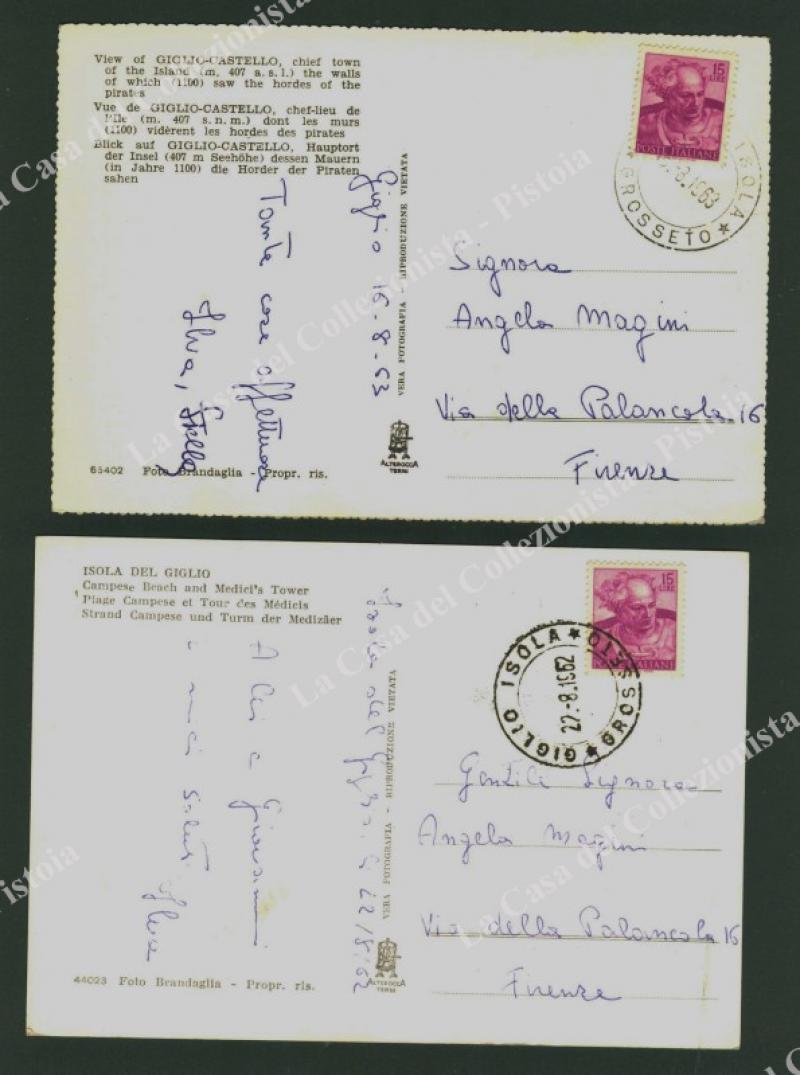 View of GIGLIO-CASTELLO, chief town
of the Island (m. 407 a. s. l.) the walls
of which (1100) saw the hordes of the
pirates
Vue de GIGLIO-CASTELLO, chef-lieu de
l'Ile (m. 407 s. n. m.) dont les murs
(1100) vidèrent les hordes des pirates
Blick auf GIGLIO-CASTELLO, Hauptort
der Insel (407 m Seehöhe) dessen Mauern
(in Jahre 1100) die Horder der Piraten
sahen
Giglio 16-8-63
Tante cose affettuose
Ilva, Stella
VERA FOTOGRAFIA - RIPRODUZIONE VIETATA
15
LIRE
POSTE ITALIANE
ISOLA
GROSSETO
8.1963
Signora
Angela Magini
Via della Palancola. 16
Firenze
65402 Foto Brandaglia - Propr. ris.
ALTEROCCA
TERNI
ISOLA DEL GIGLIO
Campese Beach and Medici's Tower
Plage Campese et Tour des Médicis
Strand Campese und Turm der Medizäer
Isola del Giglio, li 22/8/62
A lei e Giovanni
i miei saluti
Ilva
VERA FOTOGRAFIA - RIPRODUZIONE VIETATA
15
LIRE
POSTE ITALIANE
GIGLIO ISOLA
GROSSETO
22.-8.1962
Gentile Signora
Angela Magini
Via della Palancola 16
Firenze
44023 Foto Brandaglia - Propr. ris.
ALTEROCCA
TERNI
La Casa del Collezionista - Pistoia